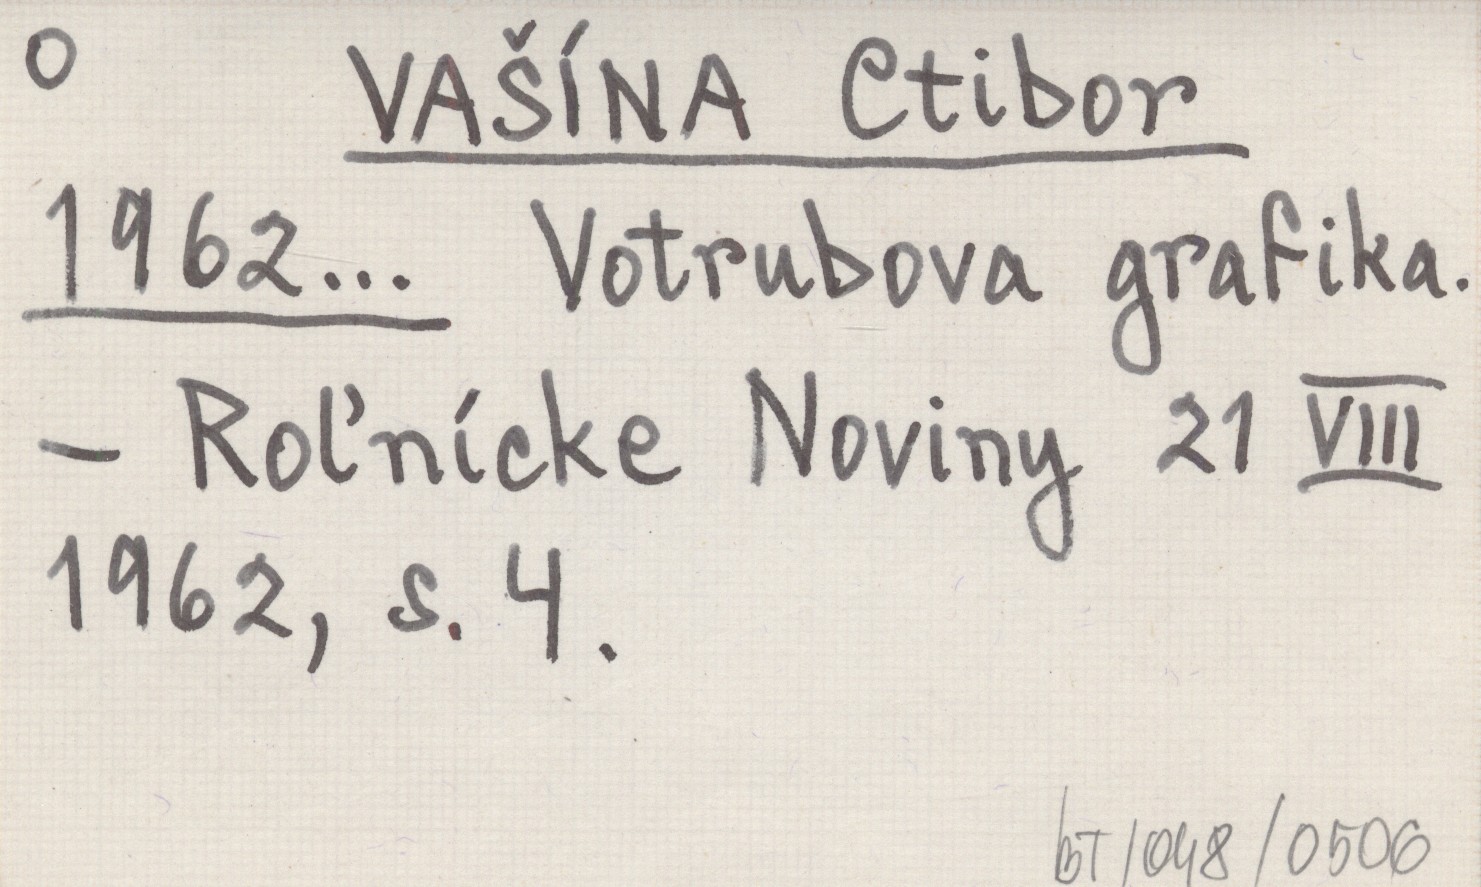 O VAŠÍNA Ctibor
1962... Votrubova grafika.
- Roľnícke Noviny 21 VIII
1962, s. 4.
bT/048/0506